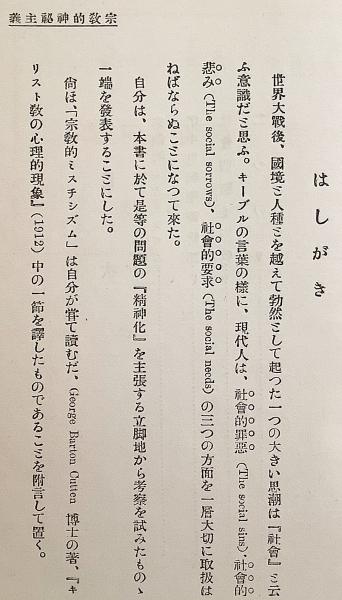 宗敎的神祕主義
はしがき
世界大戰後、國境と人種とを越えて勃然として起つた一つの大きい思潮は『社會』と云
ふ意識だと思ふ。キーブルの言葉の樣に、現代人は、社會的罪惡 (The social sins)、社會的
悲み (The social sorrows)、社會的要求 (The social needs) の三つの方面を一層大切に取扱は
ねばならぬことになつて來た。
自分は、本書に於て是等の問題の『精神化』を主張する立脚地から考察を試みたものゝ
一端を發表することにした。
尙ほ、「宗敎的ミスチシズム」は自分が嘗て讀むだ、George Barton Cutten 博士の著、『キ
リスト敎の心理的現象』(1912) 中の一節を譯したものであることを附言して置く。